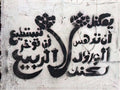 يمكنك
أن تدهس
الورود
لكنك
لا تستطيع
أن تؤخر
الربيع